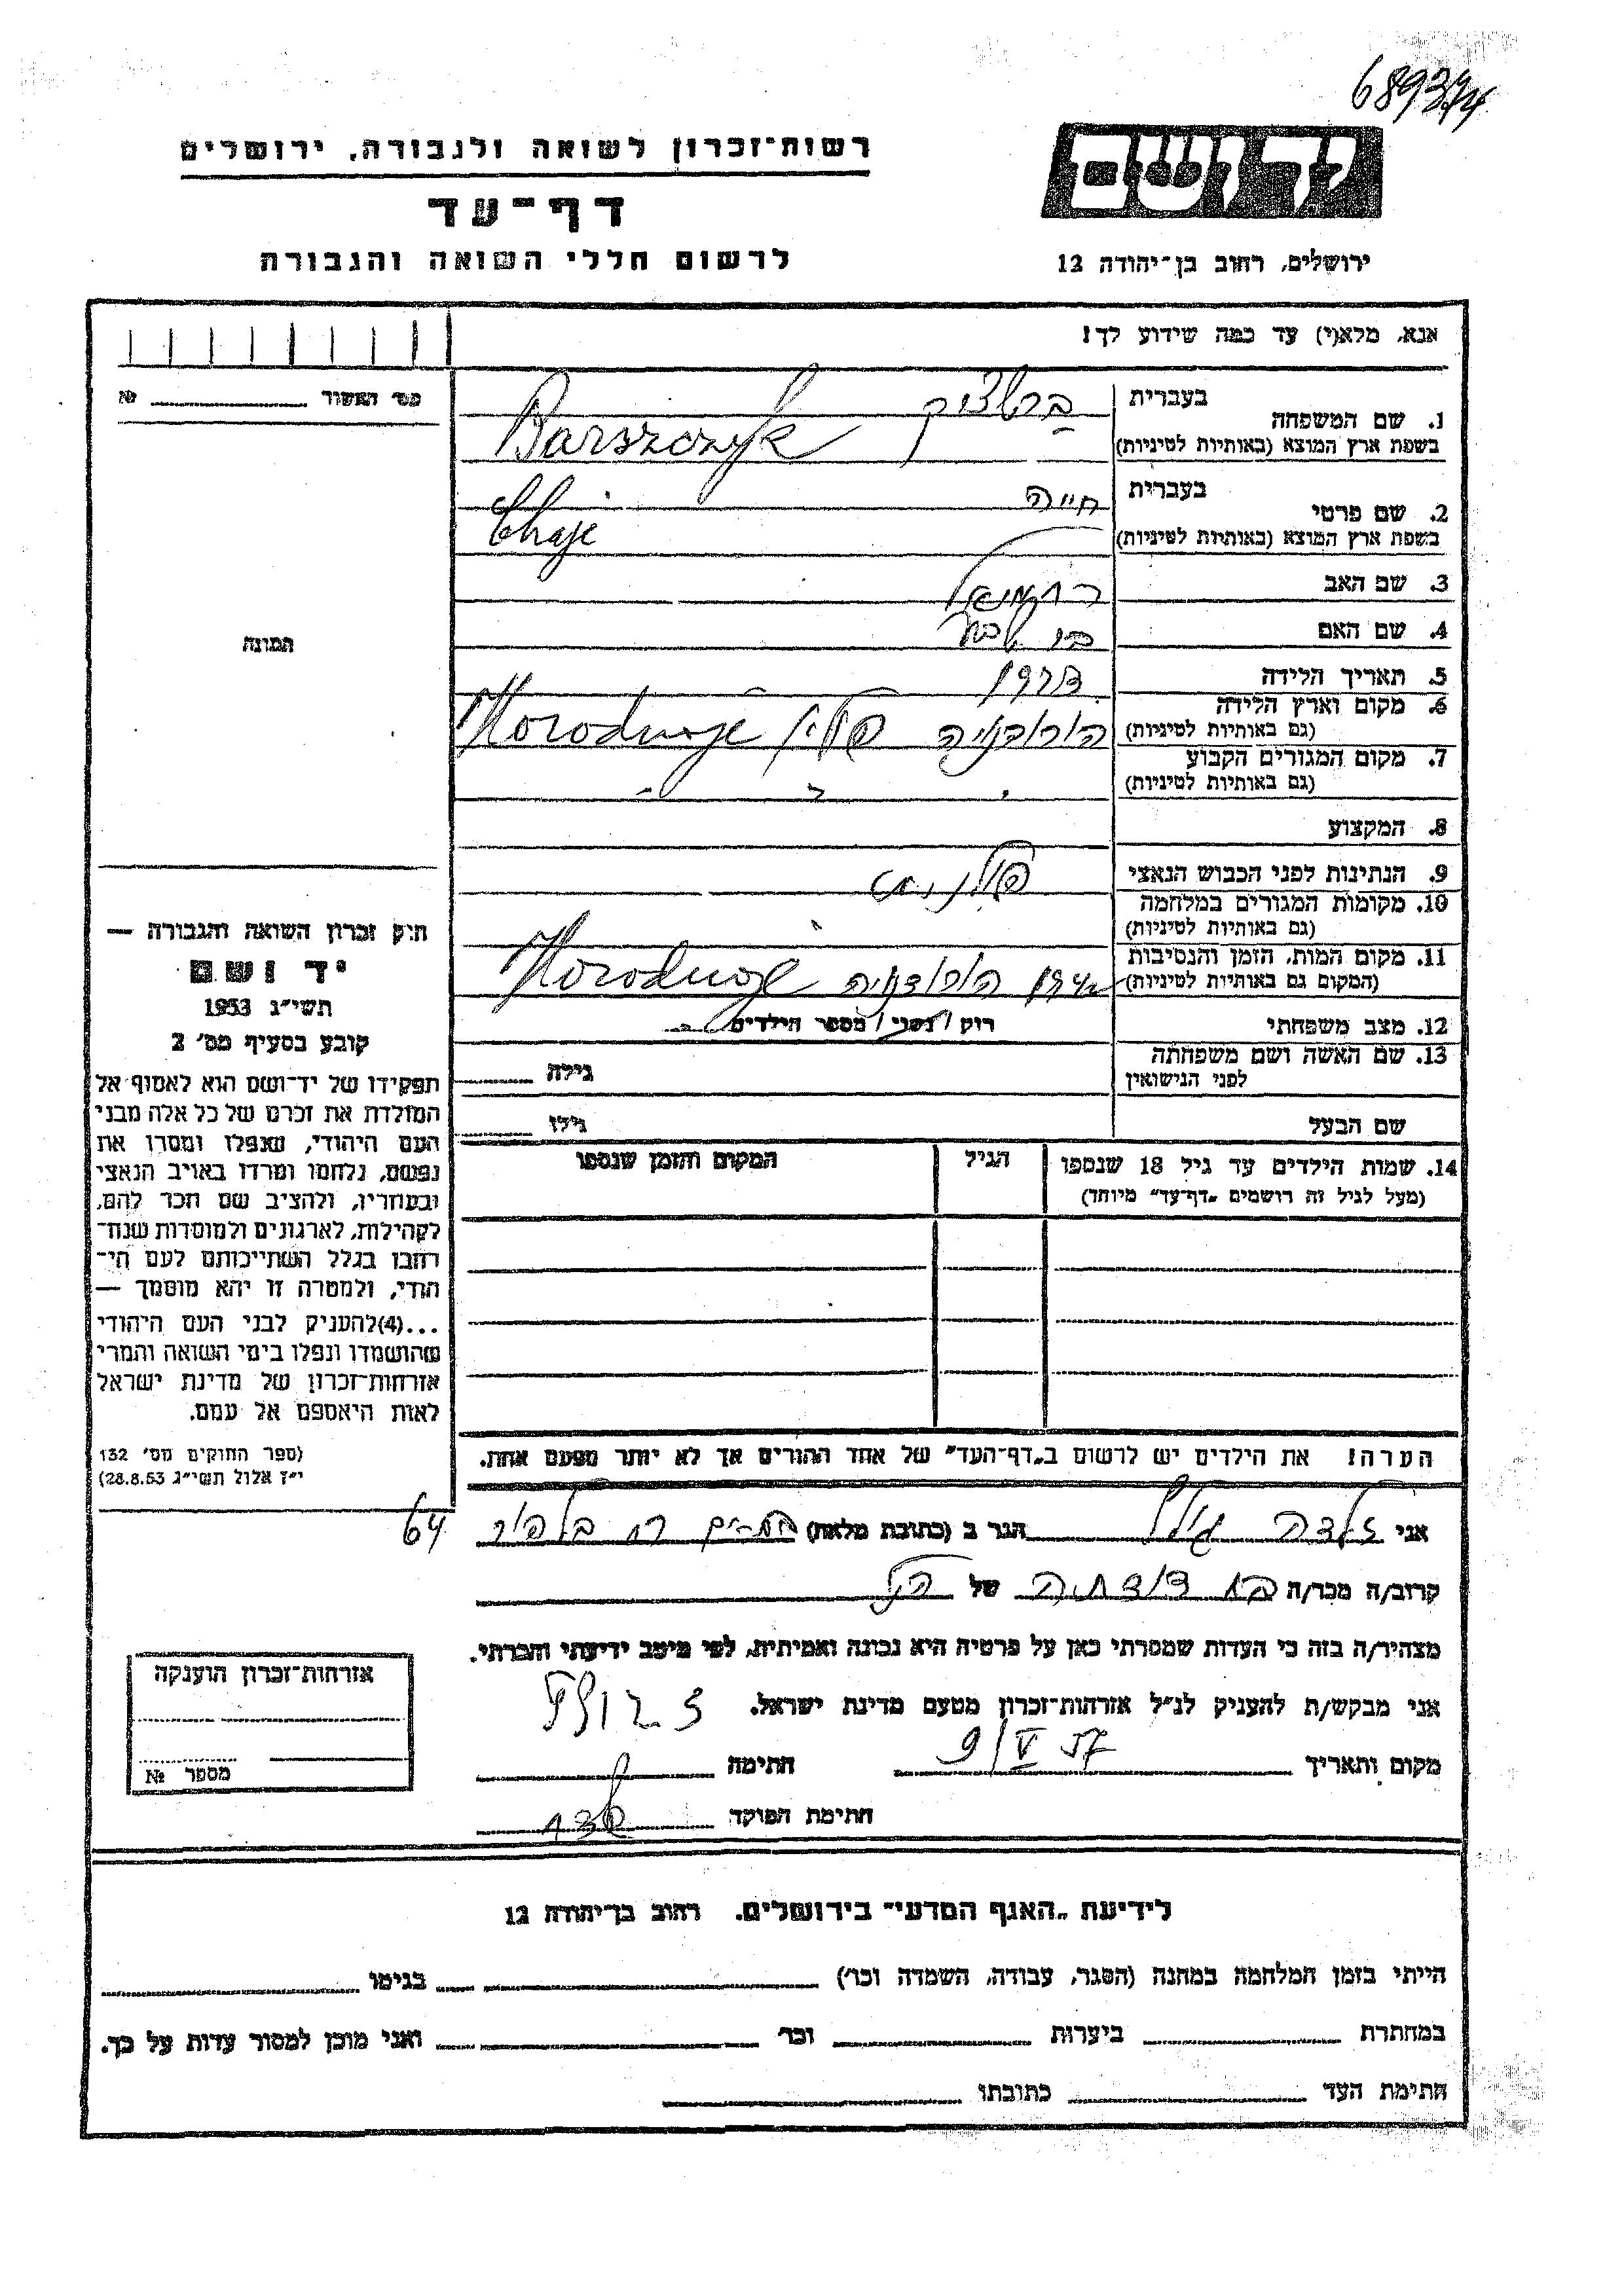 רשות־זכרון לשואה ולגבורה, ירושלים
דף־עד
לרשום חללי השואה והגבורה
יד ושם
ירושלים, רחוב בן־יהודה 12
אנא, מלא(י) עד כמה שידוע לך!
מס׳ האשור № 
1. שם המשפחה בעברית
Barszczyk
בשפת ארץ המוצא (באותיות לטיניות)
2. שם פרטי בעברית חייה
בשפת ארץ המוצא (באותיות לטיניות) Chaje
3. שם האב
4. שם האם
5. תאריך הלידה
6. מקום וארץ הלידה
(גם באותיות לטיניות) פולין Horodnoje
7. מקום המגורים הקבוע
(גם באותיות לטיניות)
8. המקצוע
9. הנתינות לפני הכבוש הנאצי פולנית
10. מקומות המגורים במלחמה
(גם באותיות לטיניות)
11. מקום המות, הזמן והנסיבות
(המקום גם באותיות לטיניות) 1942 הורודנויה Horodnoje
12. מצב משפחתי רוק / נשוי / מספר הילדים
13. שם האשה ושם משפחתה
לפני הנישואין גילה
שם הבעל גילו
14. שמות הילדים עד גיל 18 שנספו הגיל המקום והזמן שנספו
(מעל לגיל זה רושמים „דף־עד״ מיוחד)
הערה! את הילדים יש לרשום ב„דף־העד״ של אחד ההורים אך לא יותר מפעם אחת.
התמונה
חוק זכרון השואה והגבורה —
יד ושם
תשי״ג 1953
קובע בסעיף מס׳ 2
תפקידו של יד־ושם הוא לאסוף אל
המולדת את זכרם של כל אלה מבני
העם היהודי, שנפלו ומסרו את
נפשם, נלחמו ומרדו באויב הנאצי
ובעוזריו, ולהציב שם וזכר להם,
לקהילות, לארגונים ולמוסדות שנח־
רחבו בגלל השתייכותם לעם הי־
הודי, ולמטרה זו יהא מוסמך —
...(4)להעניק לבני העם היהודי
שהושמדו ונפלו בימי השואה והמרי
אזרחות־זכרון של מדינת ישראל
לאות היאספם אל עמם.
(ספר החוקים מס׳ 132
י״ז אלול תשי״ג 28.8.53)
אני זלדה הגר ב (כתובת מלאה) 64
קרוב/ה מכר/ה בת דודתה של הנ״ל
מצהיר/ה בזה כי העדות שמסרתי כאן על פרטיה היא נכונה ואמיתית, לפי מיטב ידיעתי והכרתי.
אני מבקש/ת להעניק לנ״ל אזרחות־זכרון מטעם מדינת ישראל.
מקום ותאריך 9/V 57 חתימה
חתימת הפוקד
אזרחות־זכרון הוענקה
מספר №
לידיעת „האגף המדעי״ בירושלים. רחוב בן־יהודה 12
הייתי בזמן המלחמה במחנה (הסגר, עבודה, השמדה וכו׳) בגיטו
במחתרת ביערות וכו׳ ואני מוכן למסור עדות על כך.
חתימת העד כתובתו